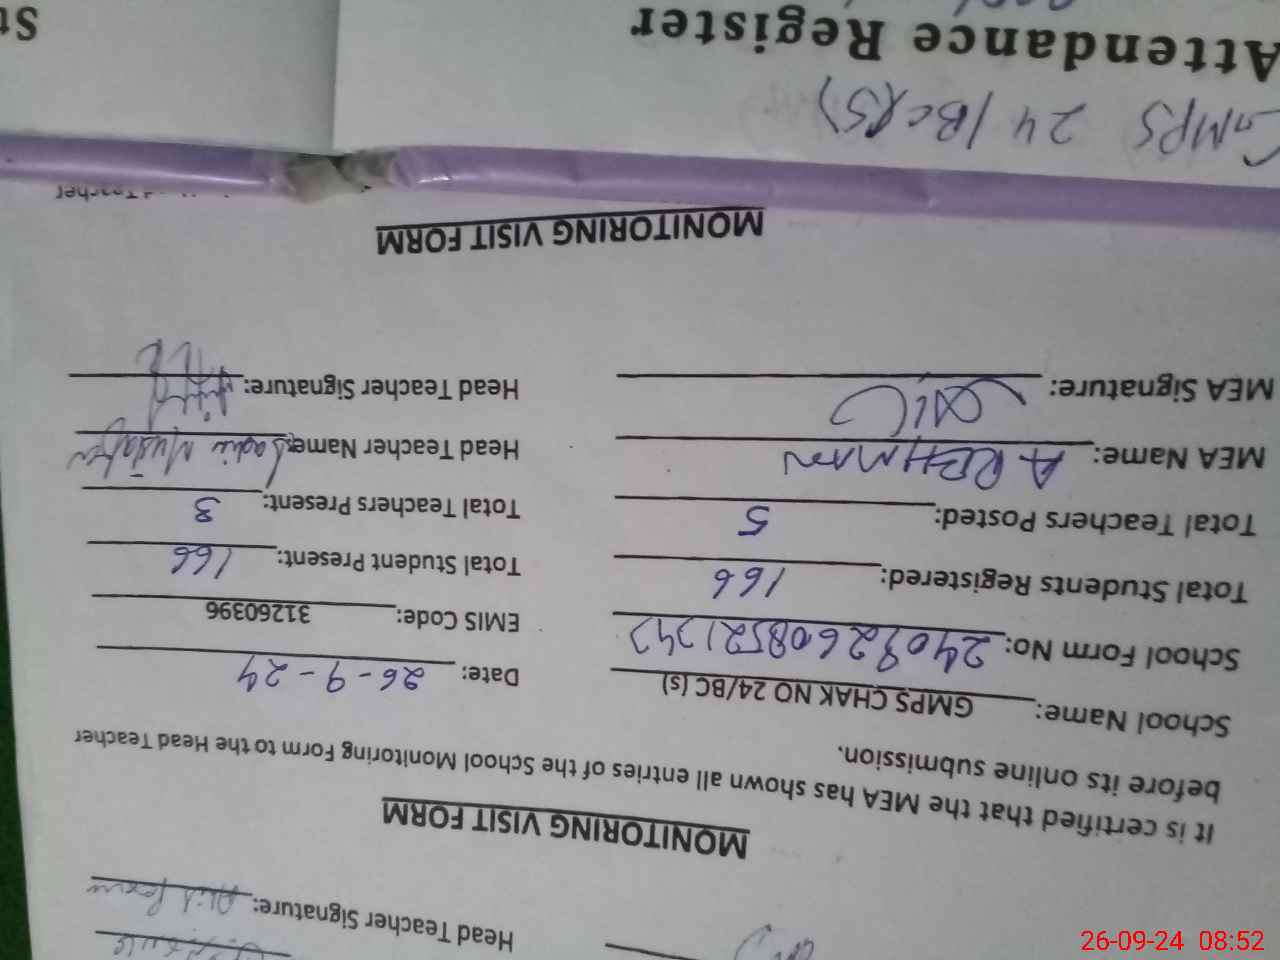 Head Teacher Signature:
MONITORING VISIT FORM
It is certified that the MEA has shown all entries of the School Monitoring Form to the Head Teacher
before its online submission.
School Name: GMPS CHAK NO 24/BC (s) Date: 26-9-24
School Form No: EMIS Code: 31260396
Total Students Registered: 166 Total Student Present: 166
Total Teachers Posted: 5 Total Teachers Present: 3
MEA Name: A REHMAN Head Teacher Name:
MEA Signature: Head Teacher Signature:
MONITORING VISIT FORM
Teacher
GMPS 24/BC(S)
Attendance Register
St
26-09-24 08:52